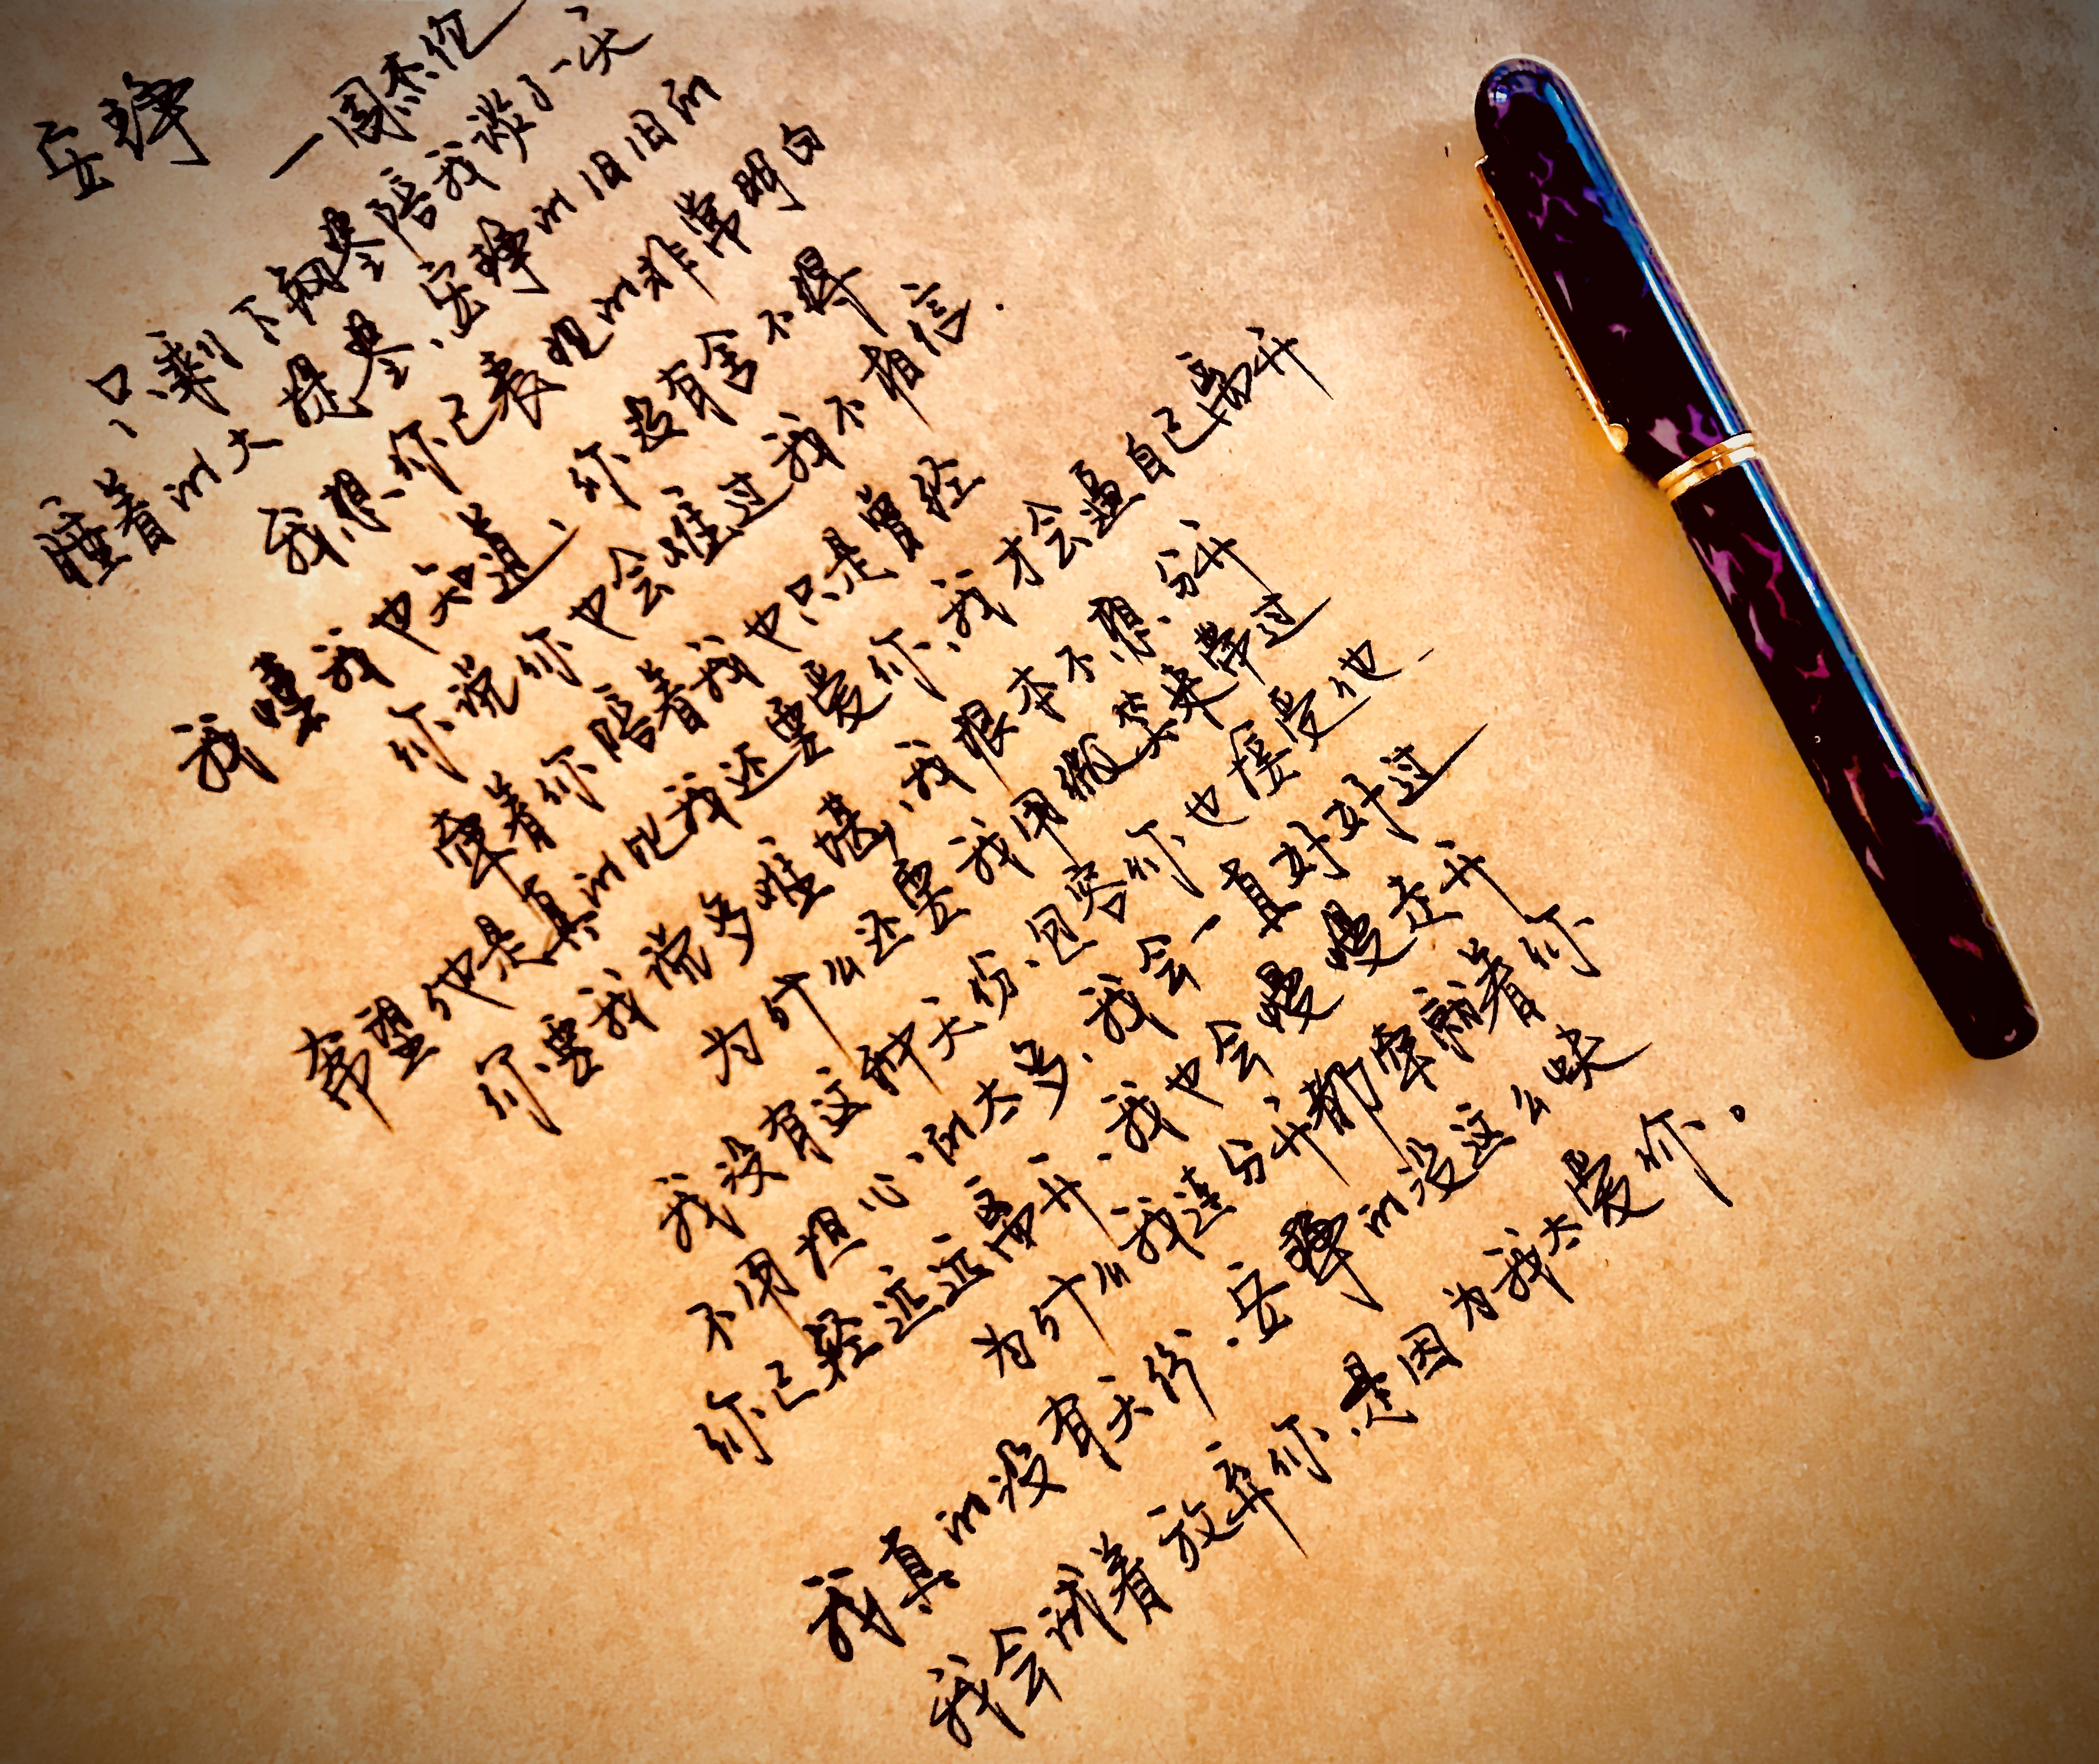 安静 一周杰伦
只剩下钢琴陪我谈了一天
睡着的大提琴、安静的旧旧的
我想、你已表现的非常明白
我懂我也知道、你没有舍不得
你说你也会难过我不相信.
牵着你陪着我也只是曾经
希望他是真的比我还要爱你、我才会逼自己离开
你要我说多难堪、我根本不想分开
为什么还要我用微笑来带过
我没有这种天份、包容你也接受他
不用担心的太多、我会一直好好过
你已经远远离开、我也会慢慢走开
为什么我连分开都牵就着你
我真的没有天份、安静的没这么快
我会试着放弃你、是因为我太爱你。